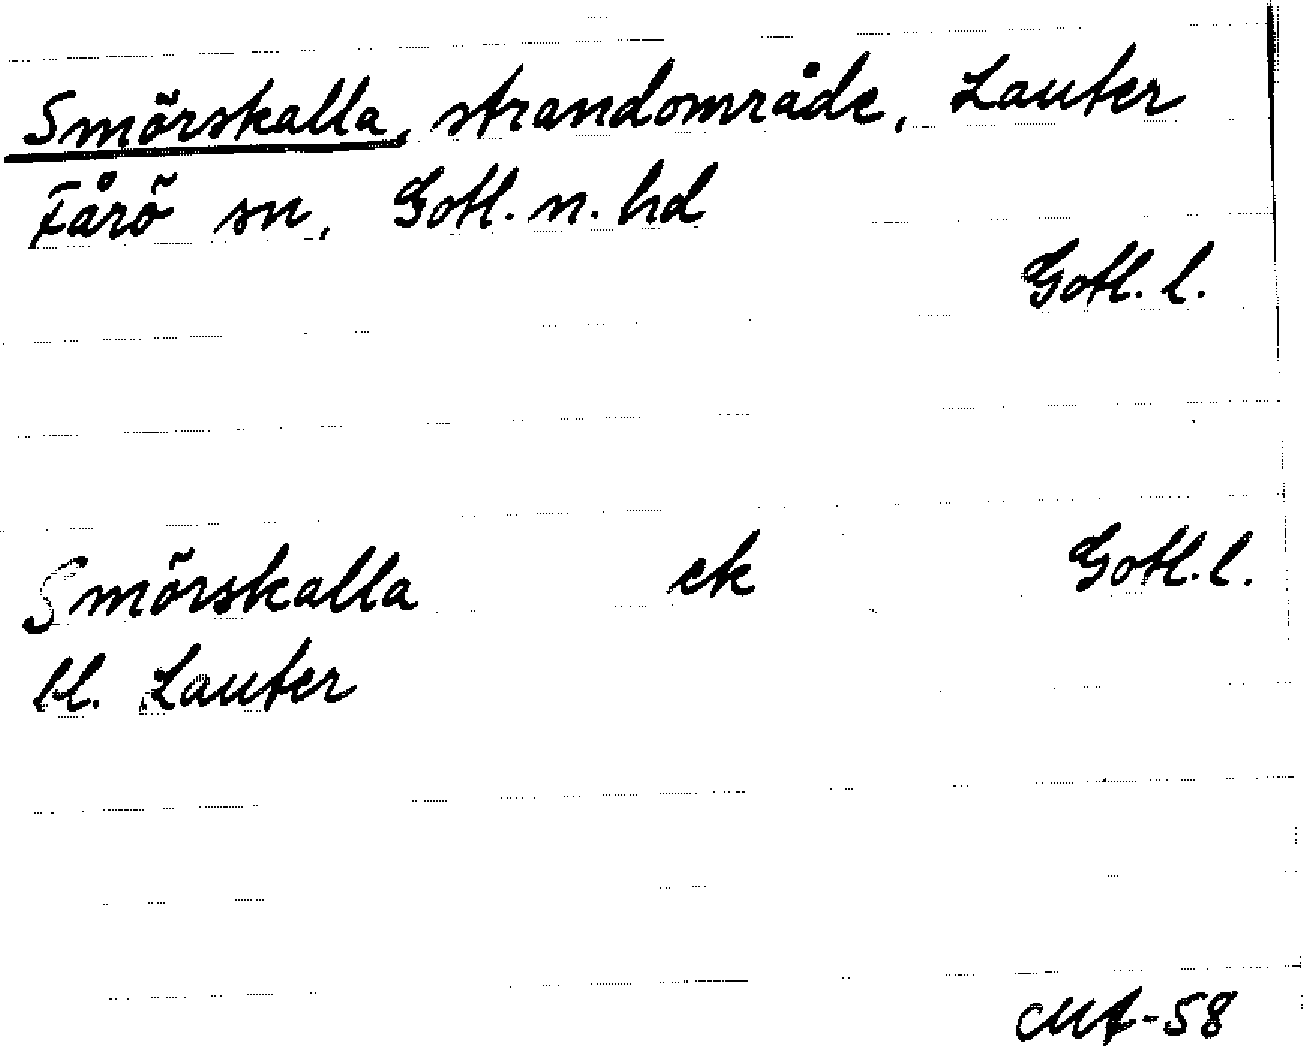 Smörskalla, strandområde, Lauter
Fårö sn, Gotl. n. hd
Gotl. l.
Smörskalla ek Gotl. l.
tl. Lauter